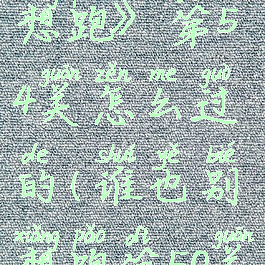 想跑》 第5
guān zěn me guò
4关 怎么过
de shuí yě bié
的(谁也别
xiǎng pǎo dì guān
想跑第50关